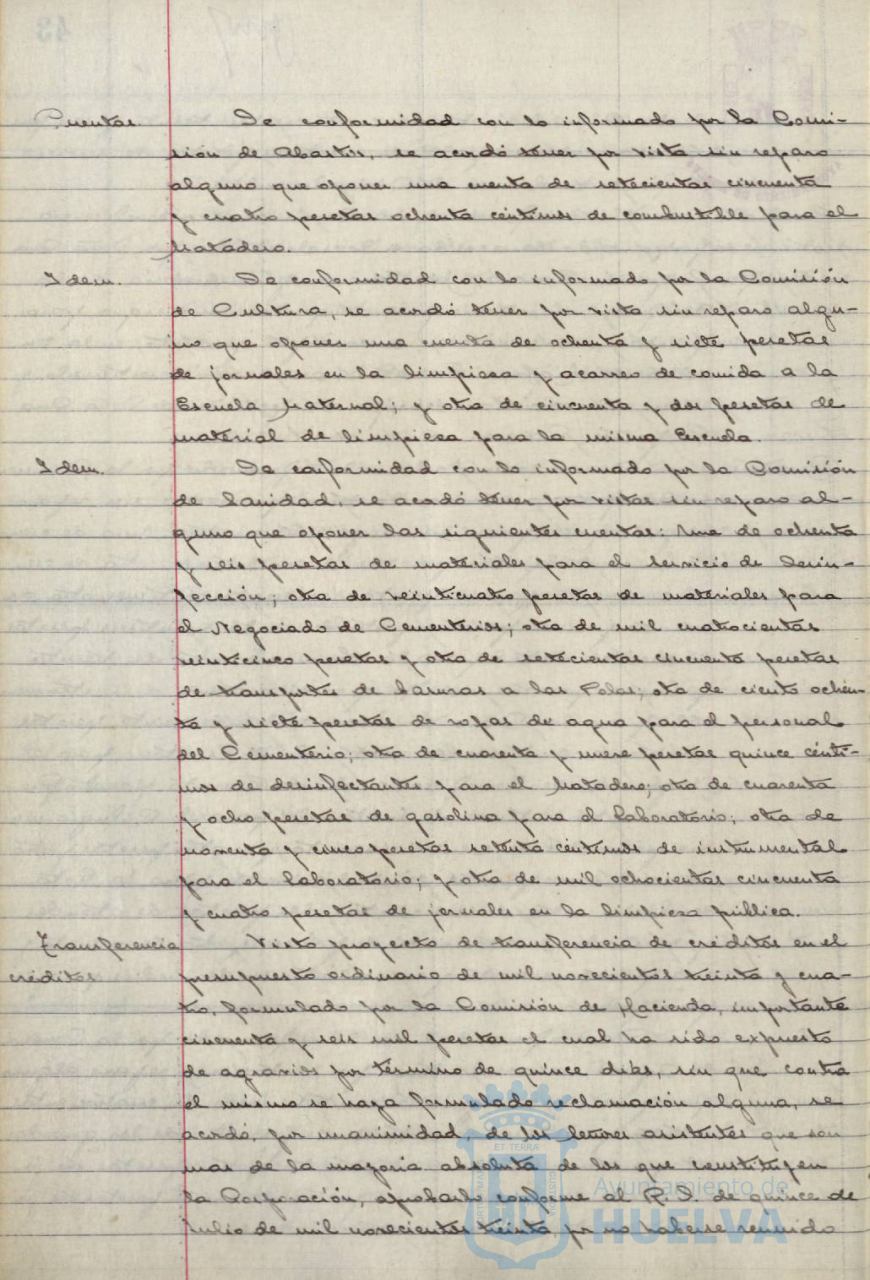 Cuentas. De conformidad con lo informado por la Comi-
sión de Abastos, se acordó tener por vista sin reparo
alguno que oponer una cuenta de setecientas cincuenta
y cuatro pesetas ochenta céntimos de combustible para el
Matadero.
Idem. De conformidad con lo informado por la Comisión
de Cultura, se acordó tener por vista sin reparo algu-
no que oponer una cuenta de ochenta y siete pesetas
de jornales en la limpieza y acarreo de comida a la
Escuela Maternal; y otra de cincuenta y dos pesetas de
material de limpieza para la misma Escuela.
Idem. De conformidad con lo informado por la Comisión
de Sanidad, se acordó tener por vistas sin reparo al-
guno que oponer las siguientes cuentas: Una de ochenta
y seis pesetas de materiales para el servicio de Desin-
fección; otra de veinticuatro pesetas de materiales para
el Negociado de Cementerios; otra de mil cuatrocientas
veinticinco pesetas y otra de setecientas cincuenta pesetas
de transportes de basuras a las Polas; otra de ciento ochen-
ta y siete pesetas de ropas de agua para el personal
del Cementerio; otra de cuarenta y nueve pesetas quince cénti-
mos de desinfectantes para el Matadero; otra de cuarenta
y ocho pesetas de gasolina para el Laboratorio; otra de
noventa y cinco pesetas setenta céntimos de instrumental
para el Laboratorio; y otra de mil ochocientas cincuenta
y cuatro pesetas de jornales en la limpieza pública.
Transferencia Visto proyecto de transferencia de créditos en el
créditos presupuesto ordinario de mil novecientos treinta y cua-
tro, formulado por la Comisión de Hacienda, importante
cincuenta y seis mil pesetas el cual ha sido expuesto
de agravios por término de quince días, sin que contra
el mismo se haya formulado reclamación alguna, se
acordó, por unanimidad, de los señores asistentes que son
mas de la mayoría absoluta de los que constituyen
la Corporación, aprobarlo conforme al R.D. de quince de
Julio de mil novecientos treinta, por no haberse reunido
Ayuntamiento de
HUELVA